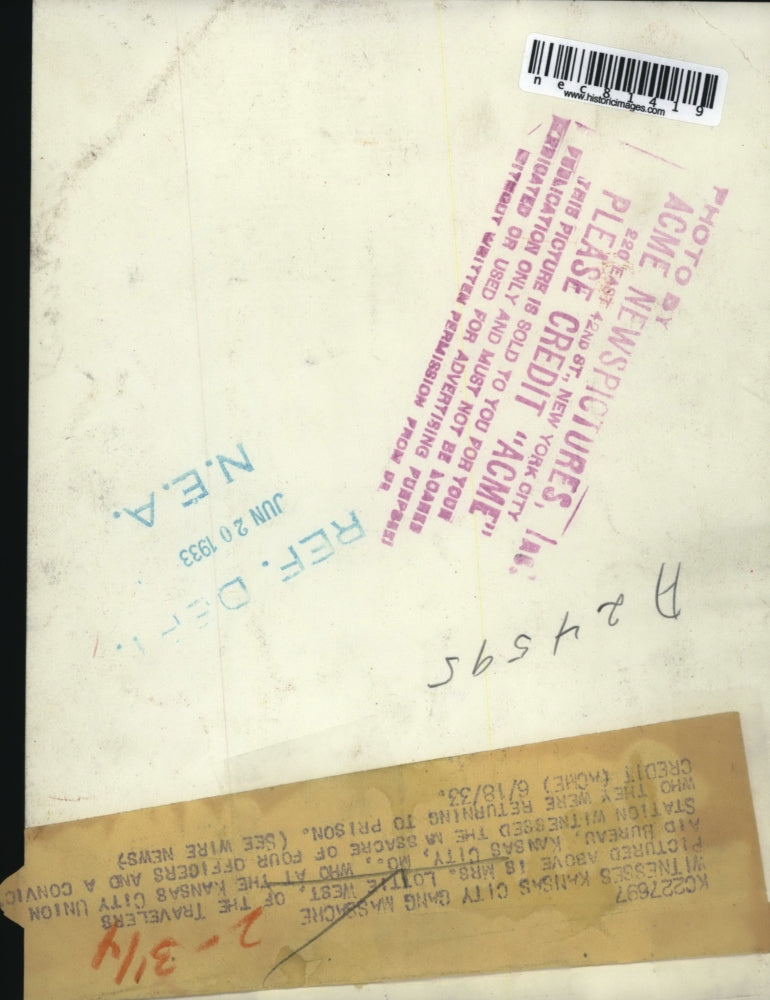 nec81419
www.historicimages.com
PHOTO BY
ACME NEWSPICTURES, Inc.
220 EAST 42ND ST., NEW YORK CITY
PLEASE CREDIT "ACME"
THIS PICTURE IS SOLD TO YOU FOR YOUR
PUBLICATION ONLY AND MUST NOT BE LOANED
OR USED FOR ADVERTISING PURPOSES
WITHOUT WRITTEN PERMISSION FROM US.
REF. DEPT.
JUN 20 1933
N.E.A.
A24595
KC227697
WITNESSES KANSAS CITY GANG MASSACRE
PICTURED ABOVE IS MRS. LOTTIE WEST, OF THE TRAVELERS
AID BUREAU, KANSAS CITY, MO., WHO AT THE KANSAS CITY UNION
STATION WITNESSED THE MASSACRE OF FOUR OFFICERS AND A CONVIC
WHO THEY WERE RETURNING TO PRISON. (SEE WIRE NEWS)
CREDIT (ACME) 6/18/33.
2-3 1/4